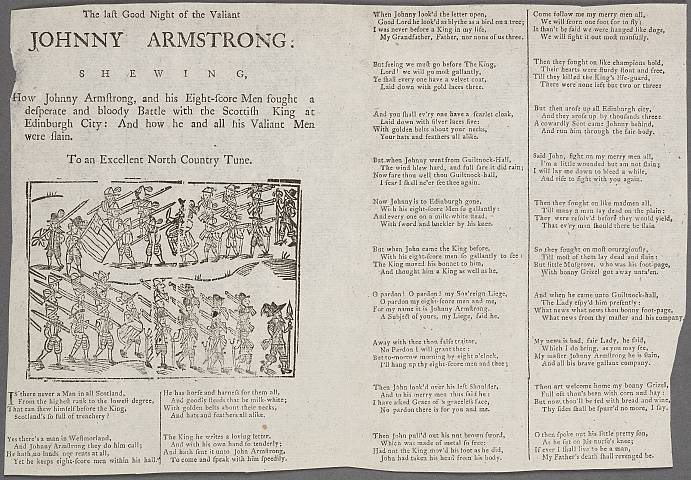 The laſt Good Night of the Valiant
JOHNNY ARMSTRONG:
SHEWING,
How Johnny Armſtrong, and his Eight-ſcore Men fought a
deſperate and bloody Battle with the Scottiſh King at
Edinburgh City: And how he and all his Valiant Men
were ſlain.
To an Excellent North Country Tune.
IS there never a Man in all Scotland,
From the higheſt rank to the loweſt degree,
That can ſhew himſelf before the King,
Scotland's ſo full of treachery?
Yes there's a man in Weſtmorland,
And Johnny Armſtrong they do him call;
He hath no lands nor rents at all,
Yet he keeps eight-ſcore men within his hall.
He has horſe and harneſs for them all,
And goodly ſteeds that be milk-white;
With golden belts about their necks,
And hats and feathers all alike.
The King he writes a loving letter,
And with his own hand ſo tenderly;
And hath ſent it unto John Armſtrong,
To come and ſpeak with him ſpeedily.
When Johnny look'd the letter upon,
Good Lord he look'd as blythe as a bird on a tree;
I was never before a King in my life,
My Grandfather, Father, nor none of us three.
But ſeeing we muſt go before The King,
Lord! we will go moſt gallantly,
Ye ſhall every one have a velvet coat,
Laid down with gold laces three.
And you ſhall ev'ry one have a ſcarlet cloak,
Laid down with ſilver laces five:
With golden belts about your necks,
Your hats and feathers all alike.
But when Johnny went from Guiltnock-Hall,
The wind blew hard, and full faſt it did rain;
Now fare thou well thou Guiltnock-hall,
I fear I ſhall ne'er ſee thee again.
Now Johnny is to Edinburgh gone,
With his eight-ſcore Men ſo gallantly:
And every one on a milk-white ſtead,
With ſword and buckler by his knee.
But when John came the King before,
With his eight-ſcore men ſo gallantly to ſee:
The King moved his bonnet to him,
And thought him a King as well as he.
O pardon! O pardon! my Sov'reign Liege,
O pardon my eight-ſcore men and me,
For my name it is Johnny Armſtrong,
A Subject of yours, my Liege, ſaid he.
Away with thee thou falſe traitor,
No Pardon I will grant thee:
But to-morrow morning by eight o'clock,
I'll hang up the eight-ſcore men and thee;
Then John look'd over his left Shoulder,
And to his merry men thus ſaid he:
I have aſked Grace of a graceleſs face,
No pardon there is for you and me.
Then John pull'd out his nut brown ſword,
Which was made of metal ſo free:
Had not the King mov'd his foot as he did,
John had taken his head from his body.
Come follow me my merry men all,
We will ſcorn one foot for to fly:
It ſhan't be ſaid we were hanged like dogs,
We will fight it out moſt manfully.
Then they fought on like champions bold,
Their hearts were ſturdy ſtout and free,
Till they killed the King's life-guard,
There were none left but two or three:
But then aroſe up all Edinburgh city,
And they aroſe up by thouſands three:
A cowardly Scot came Johnny behind,
And run him through the fair body.
Said John, fight on my merry men all,
I'm a little wounded but am not ſlain;
I will lay me down to bleed a while,
And riſe to fight with you again.
Then they fought on like madmen all,
Till many a man lay dead on the plain:
They were reſolv'd before they would yield,
That ev'ry man ſhould there be ſlain
So they fought on moſt couragiouſly,
Till moſt of them lay dead and ſlain:
But little Moſgrove, who was his foot-page,
With bonny Grizel got away unta'en.
And when he came unto Guiltnock-hall,
The Lady eſpy'd him preſently:
What news what news thou bonny foot-page,
What news from thy maſter and his company
My news is bad, fair Lady, he ſaid,
Which I do bring, as you may ſee,
My maſter Johnny Armſtrong he is ſlain,
And all his brave gallant company.
Thou art welcome home my bonny Grizel,
Full oft thou'ſt been with corn and hay:
But now thou'lt be fed with bread and wine,
Thy ſides ſhall be ſpurr'd no more, I ſay.
O then ſpoke out his little pretty ſon,
As he ſat on his nurſe's knee;
If ever I ſhall live to be a man,
My Father's death ſhall revenged be.